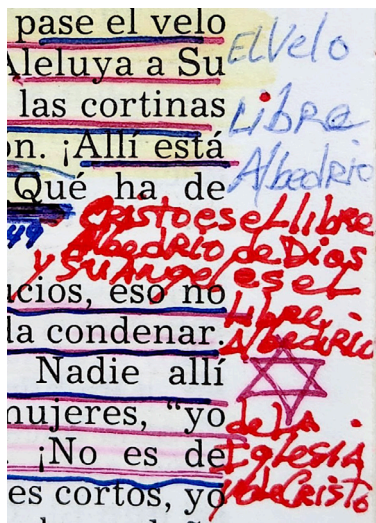 pase el velo
Aleluya a Su
las cortinas
¡Allí está
Qué ha de
ucios, eso no
da condenar.
Nadie allí
mujeres, “yo
¡No es de
es cortos, yo
El Velo
Libre
Albedrio
49
Cristo es el libre
Albedrio de Dios
y Su Angel es el
Libre
Albedirio
de LA
Iglesia
y de Cristo